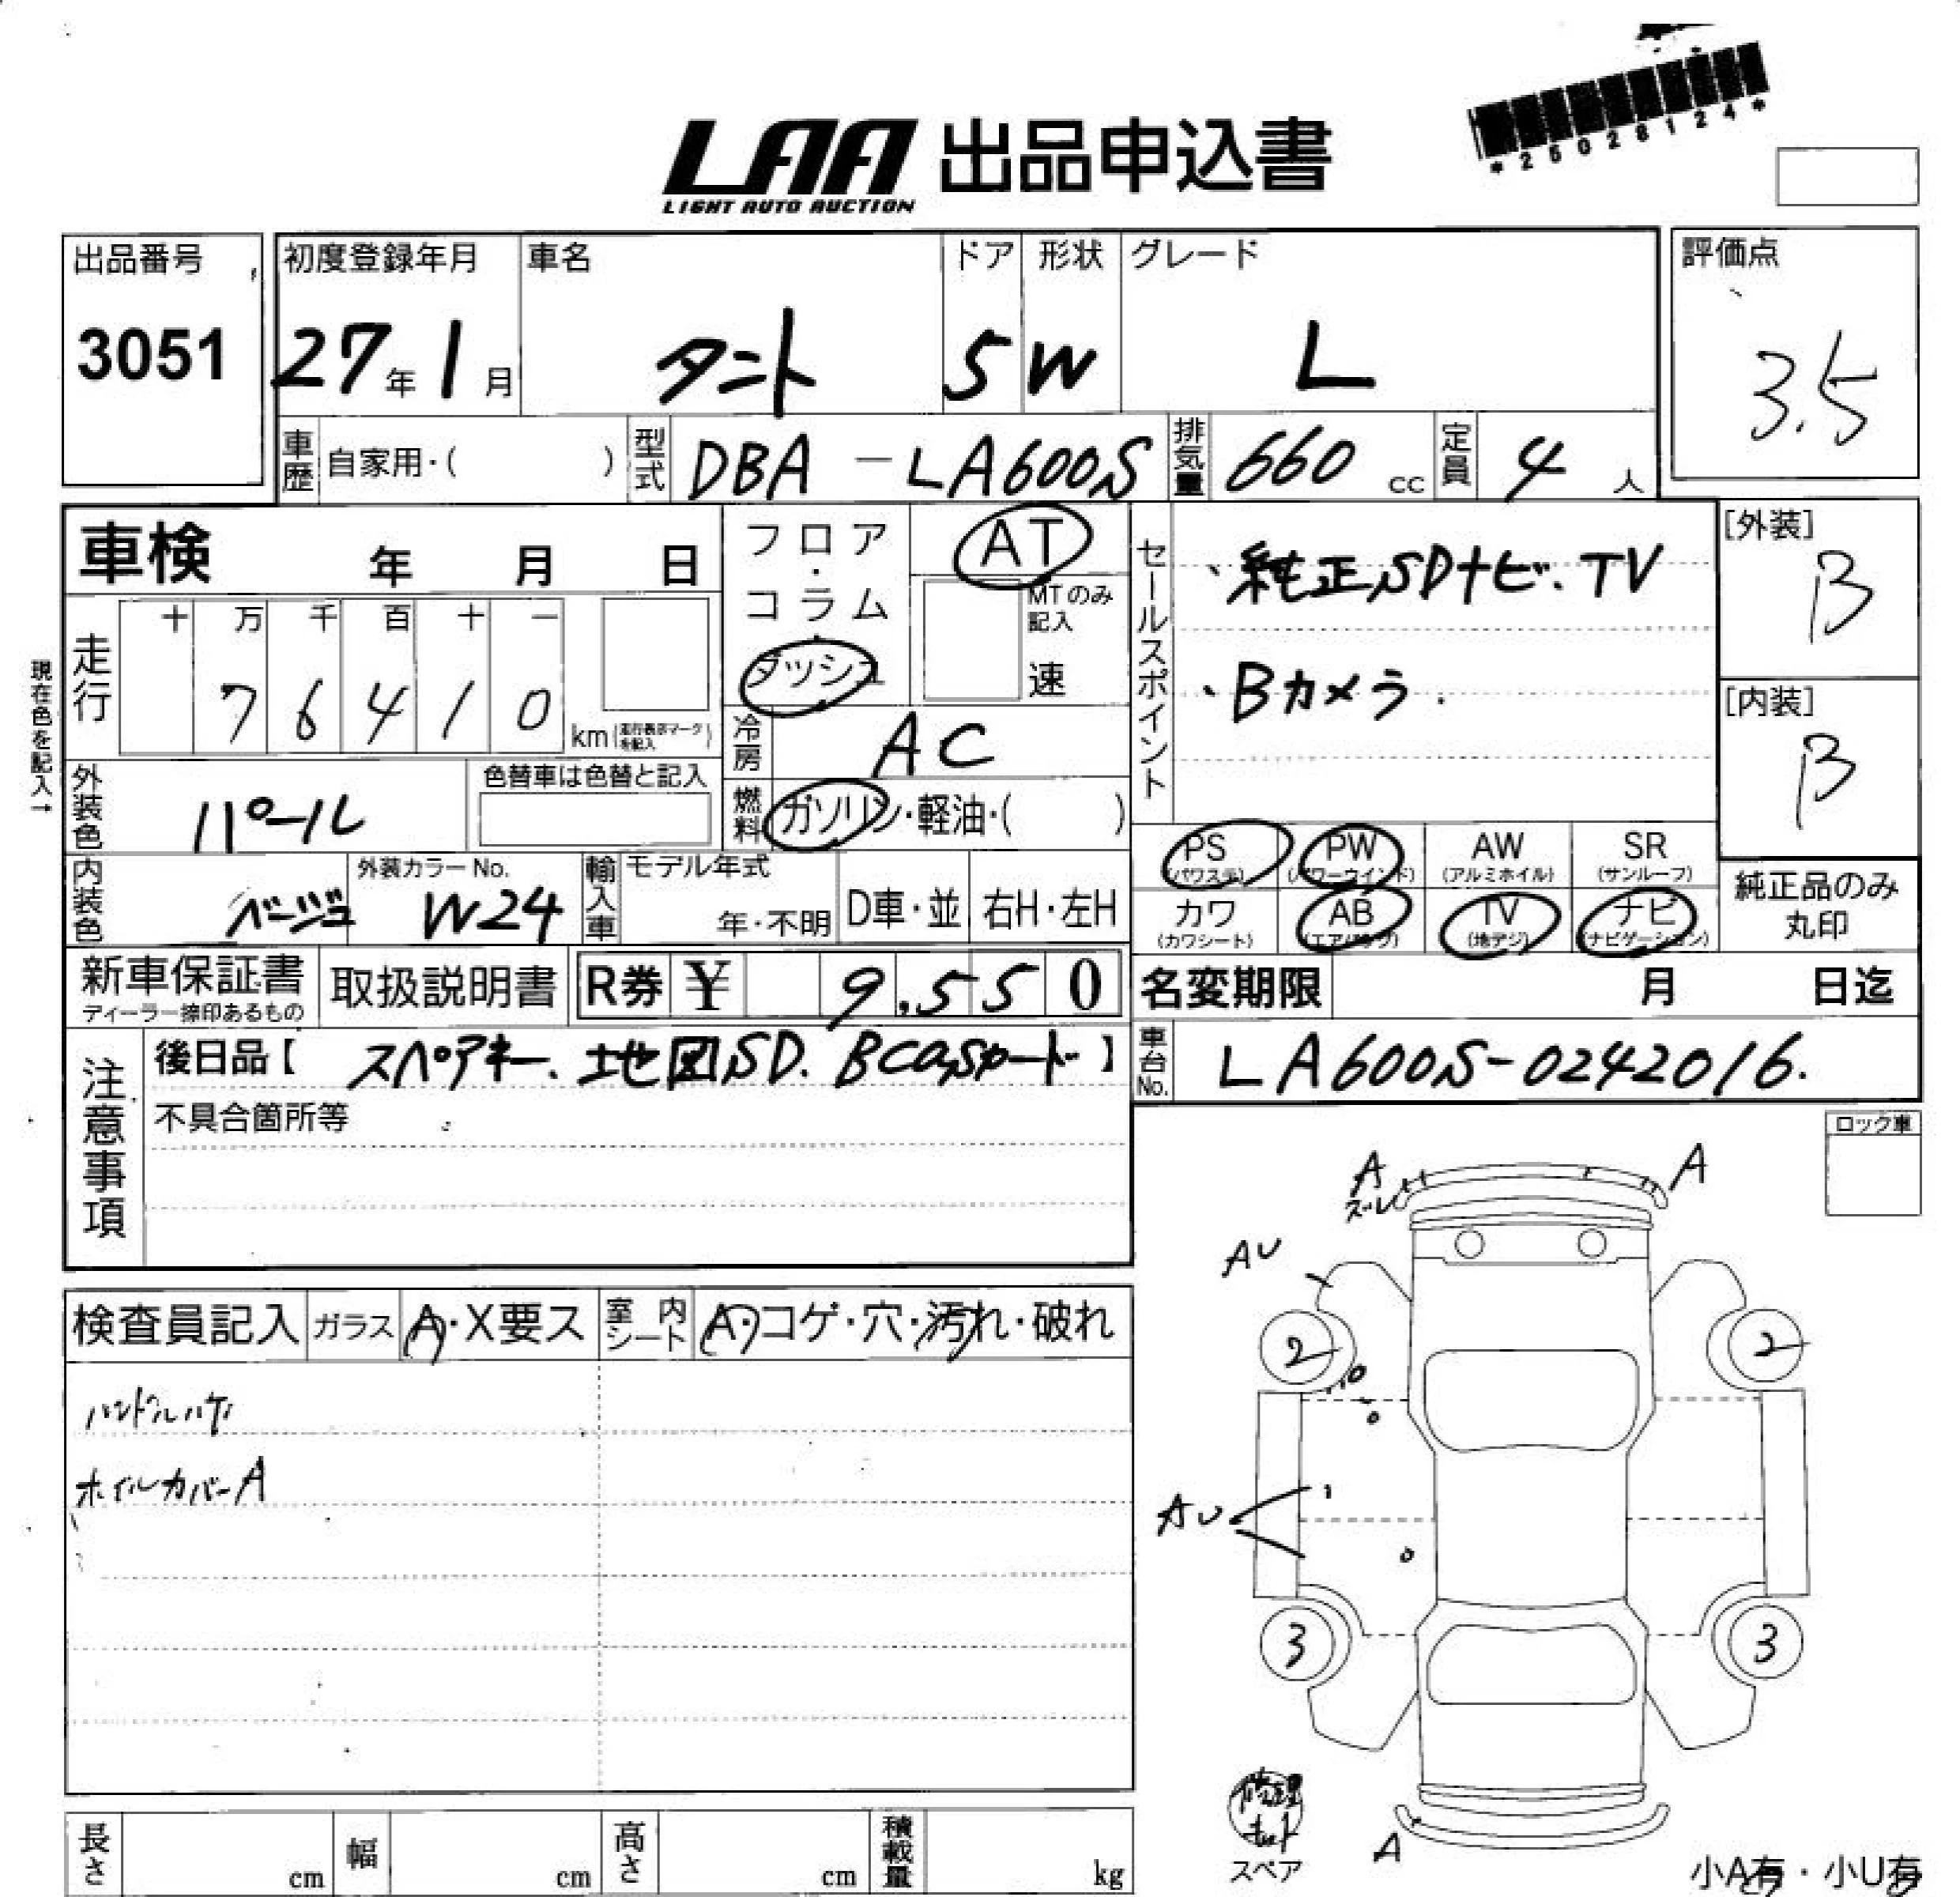 *25028124*
LAA 出品申込書
LIGHT AUTO AUCTION
出品番号 3051
初度登録年月 27年1月
車名 タント
ドア 5
形状 W
グレード L
評価点 3.5
車歴 自家用・( )
型式 DBA-LA600S
排気量 660 cc
定員 4 人
車検 年 月 日
フロア・コラム・ダッシュ
AT
MTのみ記入 速
セールスポイント
・純正SDナビ.TV
・Bカメラ.
[外装] B
[内装] B
現在色を記入→
走行 十万千百十一
76410 km(走行表示マークを記入)
冷房 AC
外装色 パール
色替車は色替と記入
燃料 ガソリン・軽油・( )
PS (パワステ)
PW (パワーウインド)
AW (アルミホイル)
SR (サンルーフ)
内装色 ベージュ
外装カラーNo. W24
輸入車 モデル年式 年・不明
D車・並
右H・左H
カワ (カワシート)
AB (エアバッグ)
TV (地デジ)
ナビ (ナビゲーション)
純正品のみ丸印
新車保証書
ディーラー捺印あるもの
取扱説明書
R券 ¥ 9,550
名変期限 月 日迄
注意事項
後日品【スペアキー、地図SD. Bcasカード】
車台No. LA600S-0242016.
不具合箇所等
ロック車
A
ズレ
A
AU
検査員記入
ガラス A・X要ス
室内シート A・コゲ・穴・汚れ・破れ
2
2
ハンドルハゲ
ホイルカバーA
AU
3
3
修理キット
スペア
A
長さ cm
幅 cm
高さ cm
積載量 kg
小A有・小U有